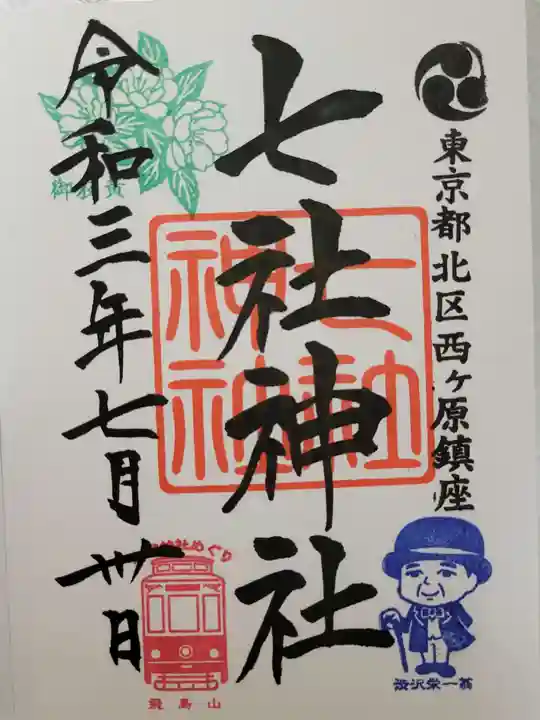 東京都北区西ヶ原鎮座
七社神社
七社
神社
令和三年七月卅日
御衣黄
めぐり
飛鳥山
渋沢栄一翁